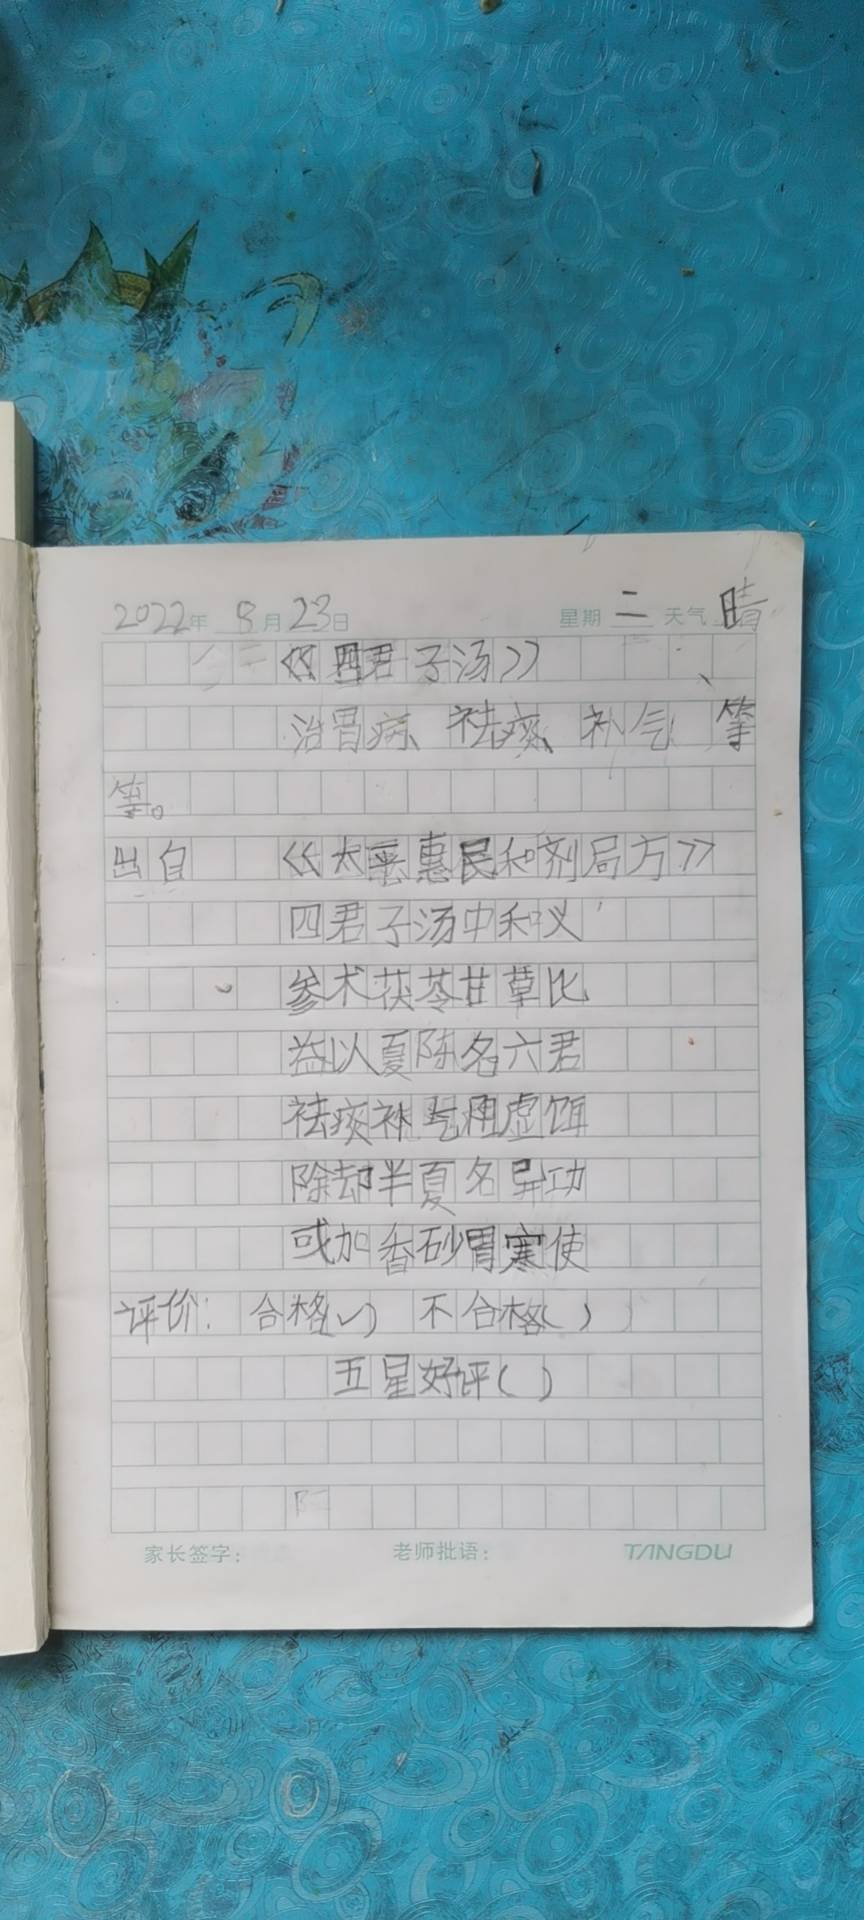 2022年 8月23日 星期二 天气晴
《四君子汤》
治胃病、祛痰、补气 等
等。
出自 《太平惠民和剂局方》
四君子汤中和义
参术茯苓甘草比
益以夏陈名六君
祛痰补气阳虚饵
除却半夏名异功
或加香砂胃寒使
评价: 合格(✓) 不合格( )
五星好评( )
家长签字: 老师批语: TANGDU